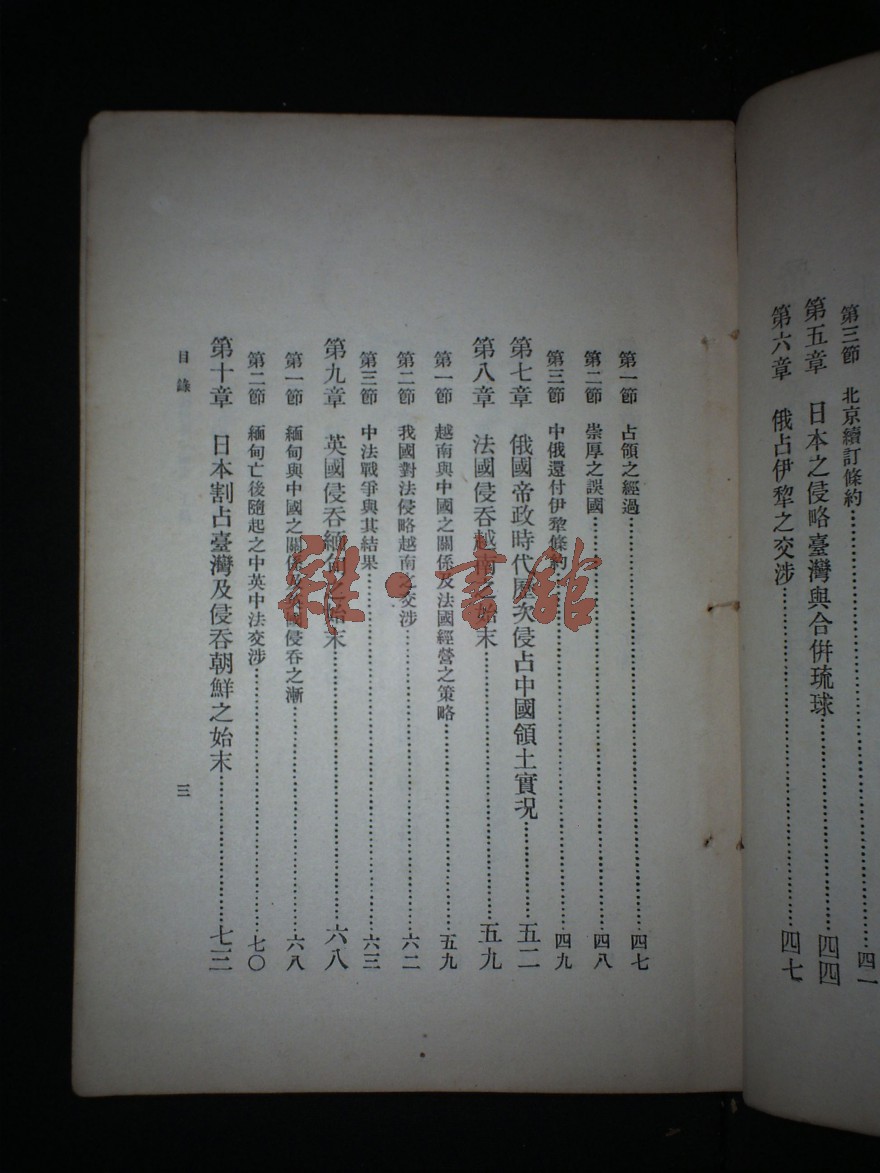 第三節 北京續訂條約…………四一
第五章 日本之侵略臺灣與合併琉球…………四四
第六章 俄占伊犂之交涉…………四七
第一節 占領之經過…………四七
第二節 崇厚之誤國…………四八
第三節 中俄還付伊犂條約…………四九
第七章 俄國帝政時代歷次侵占中國領土實況…………五二
第八章 法國侵吞越南之始末…………五九
第一節 越南與中國之關係及法國經營之策略…………五九
第二節 我國對法侵略越南之交涉…………六二
第三節 中法戰爭與其結果…………六三
第九章 英國侵吞緬甸之始末…………六八
第一節 緬甸與中國之關係及英國侵吞之漸…………六八
第二節 緬甸亡後隨起之中英中法交涉…………七〇
第十章 日本割占臺灣及侵吞朝鮮之始末…………七三
目錄 三
雜·書館